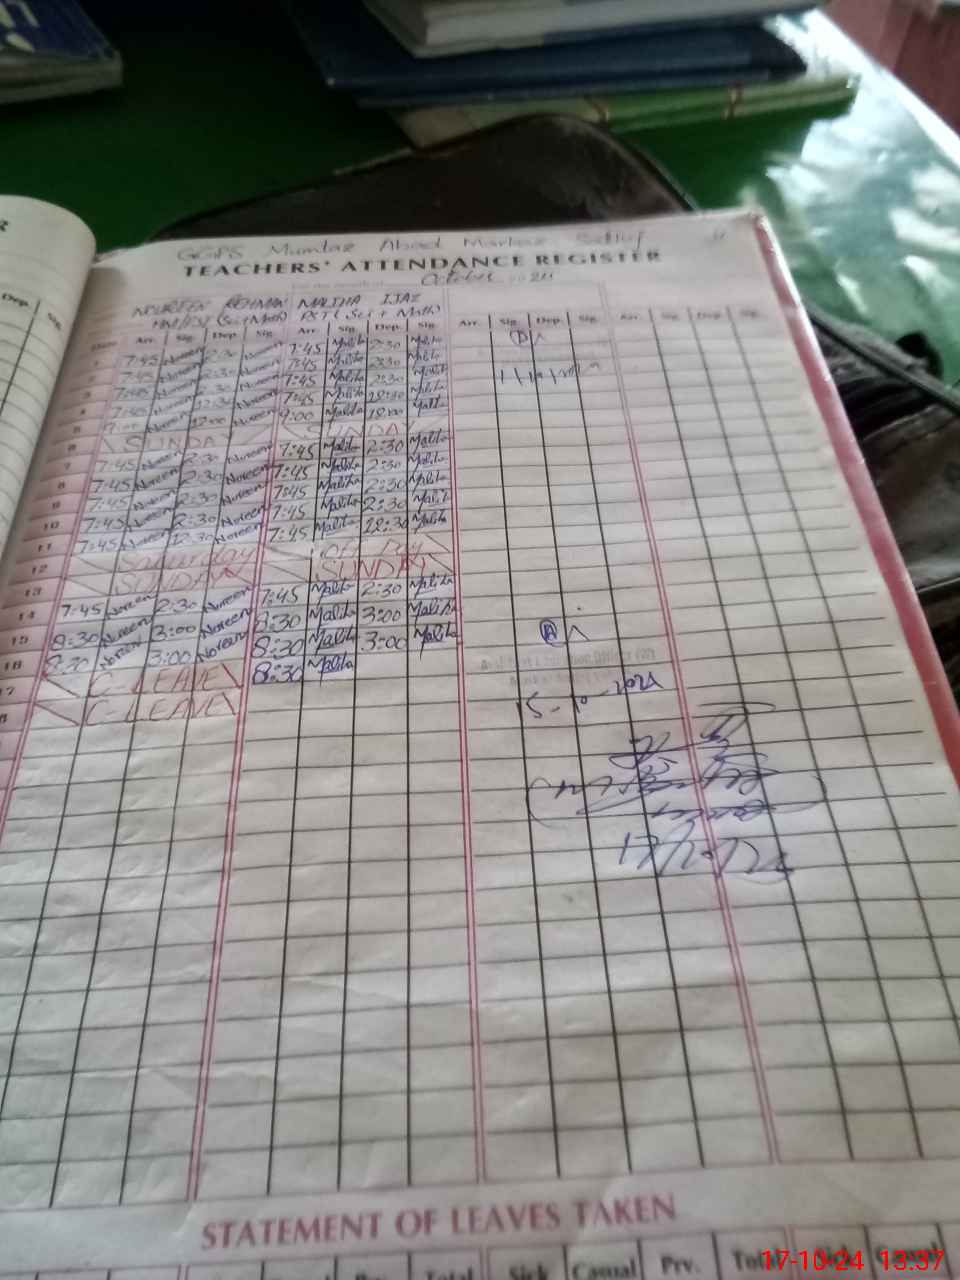 GGPS Mumtaz Abad Markaz Satluj
TEACHERS' ATTENDANCE REGISTER
October 2024
NOUREEN REHMAN MALIHA IJAZ
(Sci+Math) PST (Sci + Math)
Arr. Sig. Dep. Sig. Arr. Sig. Dep. Sig. Arr. Sig. Dep. Sig. Arr. Sig. Dep. Sig.
7:45 Noreen 2:30 Noreen 7:45 Maliha 2:30 Maliha
7:45 Noreen 2:30 Noreen 7:45 Maliha 2:30 Maliha
7:45 Noreen 2:30 Noreen 7:45 Maliha 2:30 Maliha
7:45 Noreen 12:30 Noreen 7:45 Maliha 12:30 Maliha
Noreen 12:00 Noreen 9:00 Maliha 12:00
6 SUNDAY SUNDAY
7 7:45 Noreen 2:30 Noreen 7:45 Maliha 2:30 Maliha
8 7:45 Noreen 2:30 Noreen 7:45 Maliha 2:30 Maliha
9 7:45 Noreen 2:30 Noreen 7:45 Maliha 2:30 Maliha
10 7:45 Noreen 2:30 Noreen 7:45 Maliha 2:30 Maliha
11 7:45 Noreen 12:30 Noreen 7:45 Maliha 12:30 Maliha
12 Saturday off Day
13 SUNDAY SUNDAY
14 7:45 Noreen 2:30 Noreen 7:45 Maliha 2:30 Maliha
15 8:30 Noreen 3:00 Noreen 8:30 Maliha 3:00 Maliha
16 8:30 Noreen 3:00 Noreen 8:30 Maliha 3:00 Maliha
17 C-LEAVE 8:30 Maliha
C-LEAVE
15-10-2024
STATEMENT OF LEAVES TAKEN
Total Sick Casual Prv. Total
17-10-24 13:37